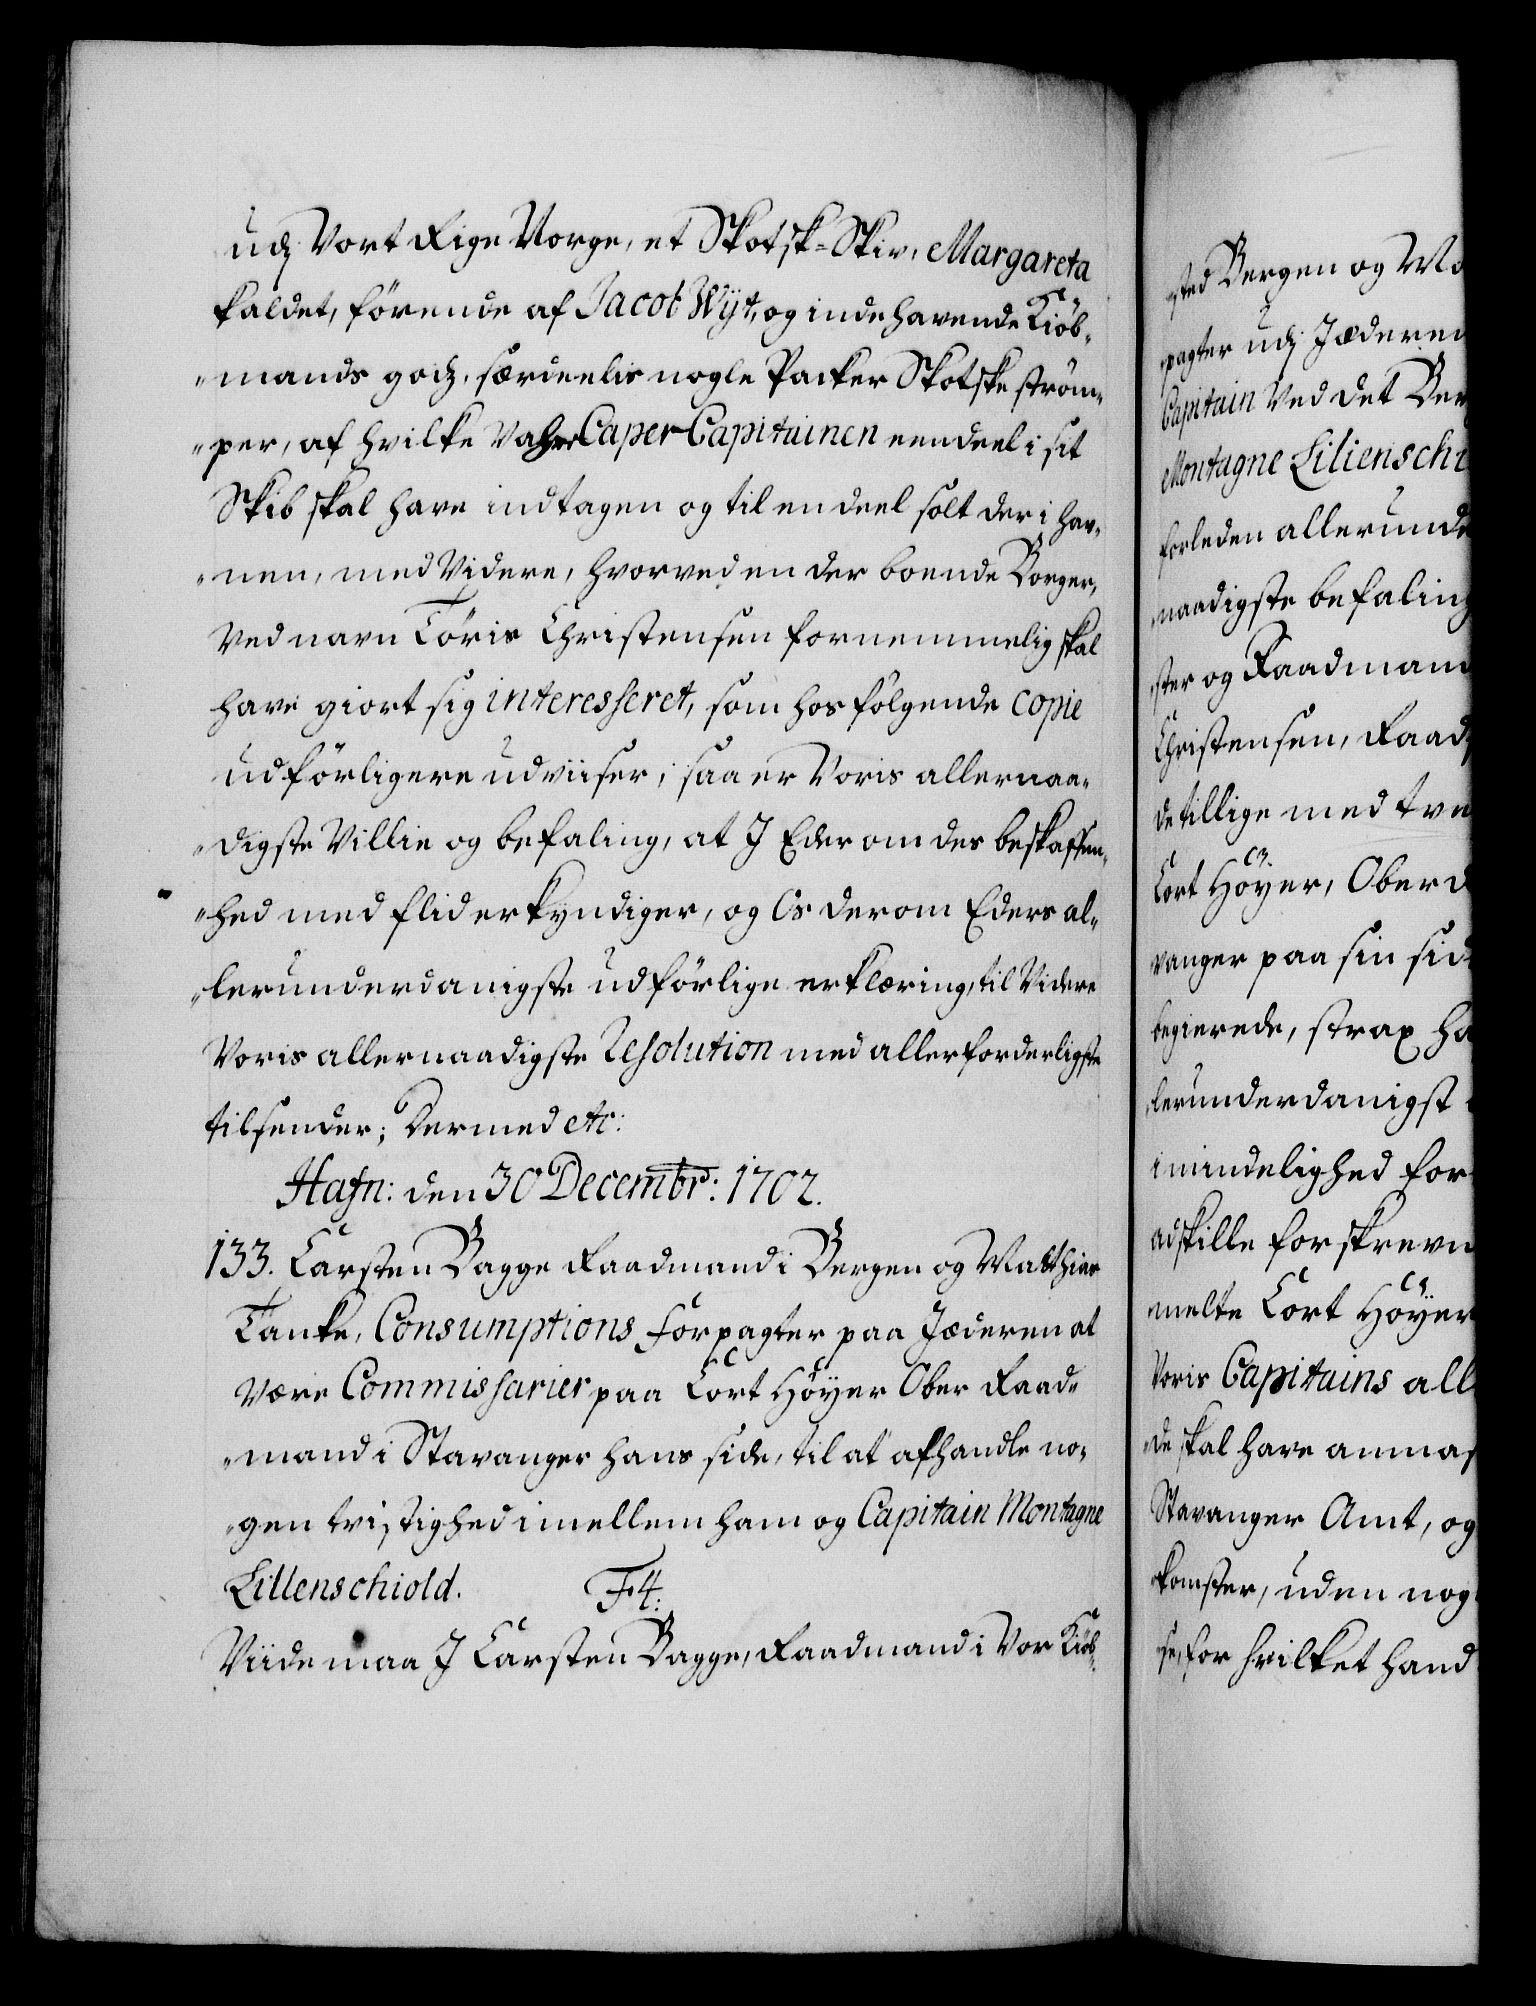 udj Vort Rige Norge, et Skotsk-Skiv, Margareta
kaldet, førende af Jacob Wijt, og indehavende Kiøb-
mands godz, særdeelis nogle Packer Skotske strøm-
per, af hvilke Vahre Caper Capitainen een deel i sit
Skib skal have indtagen og til en deel solt der i hav-
nen, med Videre, hvorved en der boende Borger,
Ved navn Tøris Christensen fornemmelig skal
have giort sig interesseret, som hos følgende copie
udførligere udviiser; saa er Voris allernaa-
digste Villie og befaling, at I Eder om des beskaffen-
hed med flid erkyndiger, og Os derom Eders al-
lerunderdanigste udførlige erklæring, til Videre
Voris allernaadigste Resolution med allerforderligste
tilsender; Dermed etc:
Hafn: den 30 Decembr: 1702.
133. Carsten Bagge Raadmand i Bergen og Matthias
Tanke, Consumptions Forpagter paa Jæderen at
være Commissarier paa Cort Høyer Ober Raad-
mand i Stavanger hans side, til at afhandle no-
gen tvistighed imellem ham og Capitain Montagne
Lillenschiold. F4:
Viide maa I Carsten Bagge, Raadmand i Vor Kiøb-
sted Bergen og Ma
pagter udj Jæderen
Capitain Ved det Ber
Montagne Lilienschi
forleden allerunde
naadigste befaling
ster og Raadmand
Christensen, Raad
de tillige med tve
Cort Høyer, Ober
vanger paa sin sid
begierede, strax ha
lerunderdanigst
i mindelighed for
adskille forskrevn
melte Cort Høyer
Voris Capitains all
de skal have anmas
Stavanger Amt, og
komster, uden nog
se, for hvilket hand